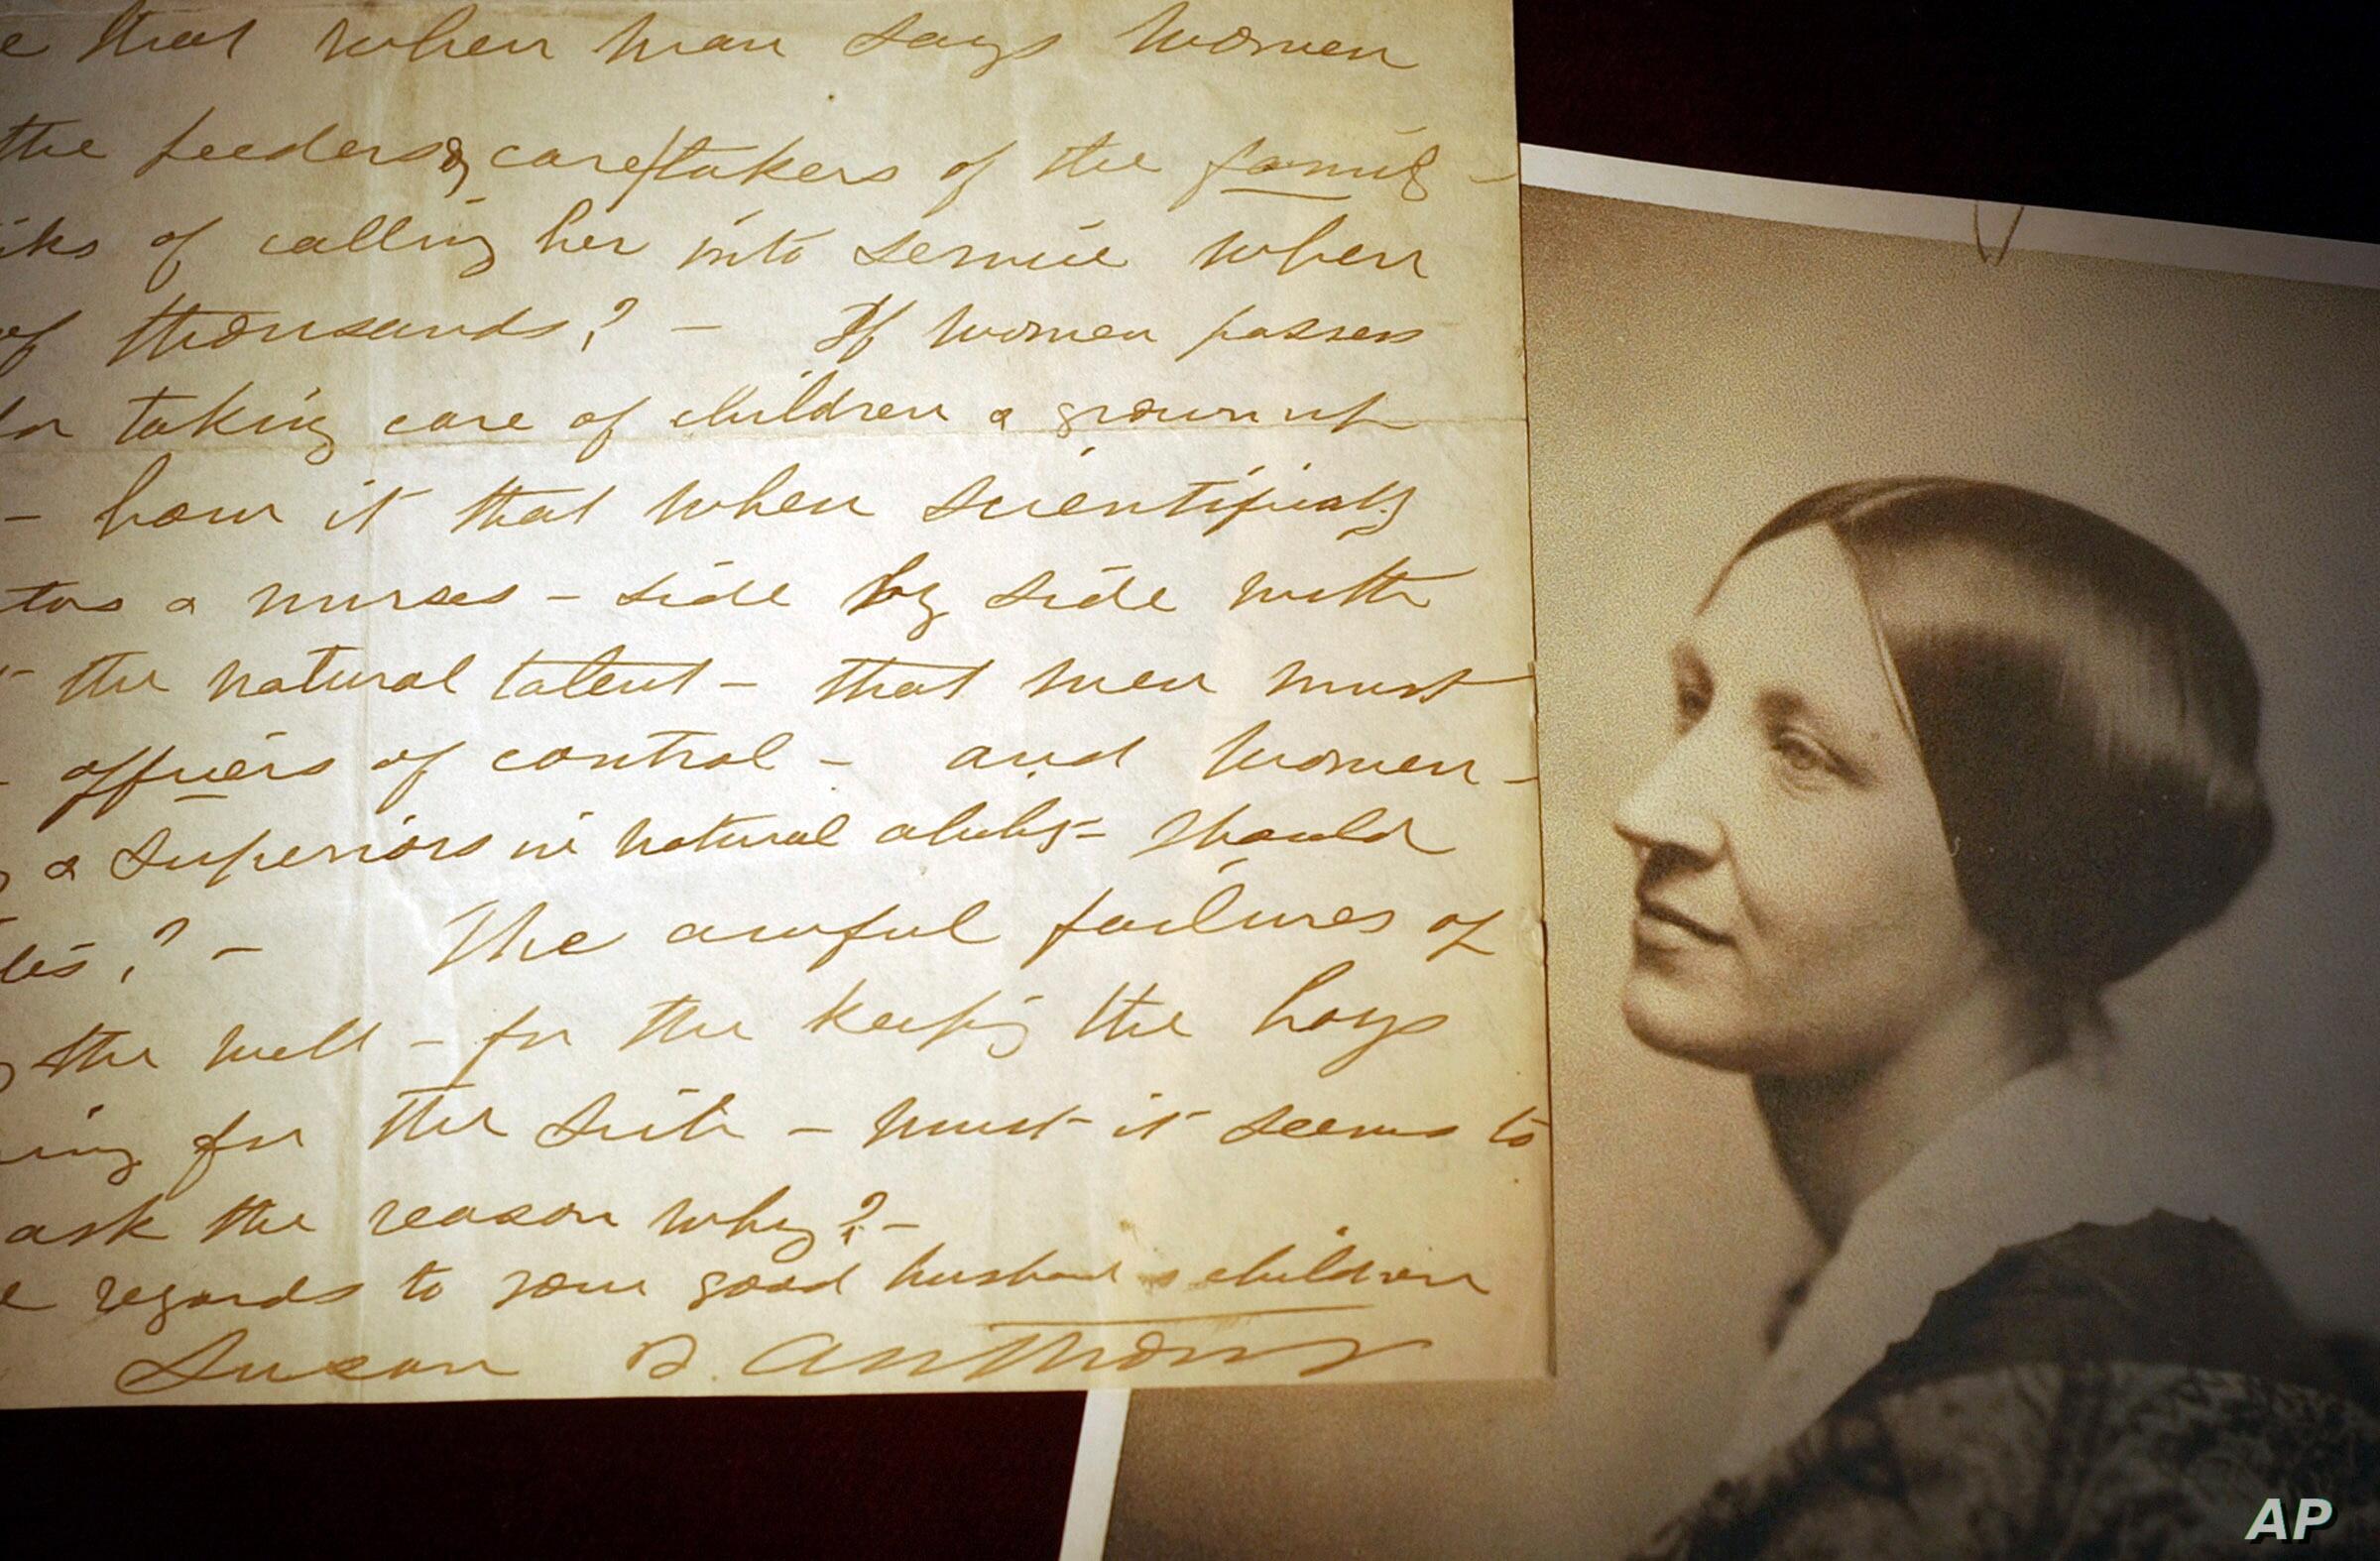 e that when man says women
the feeders & care/takers of the family -
of calling her into service when
of thousands? - If women possess
for taking care of children & grown up
- how it that when scientifically
& nurses - side by side with
- the natural talent - that men must
- officers of control - and women -
& superiors in natural ability - should
? - The awful failures of
the well - for the keeping the boys
ing for the sick - must it seems to
ask the reason why? -
regards to your good husband & children
Susan B. Anthony
AP